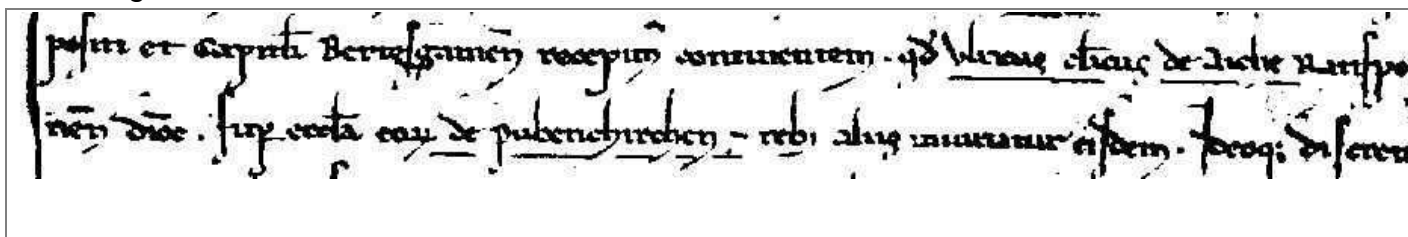 positi et Capituli Bertesgamen̄ recepim⁹ continentem. qd̄ Vlricus cl̄icus de Aiche Ratispo
nen̄ dioc̄. sup eccl̄a eoꝝ de pubenchirchen ⁊ reb⁹ alijs iniuriatur eisdem. Ideoqꝫ discreti